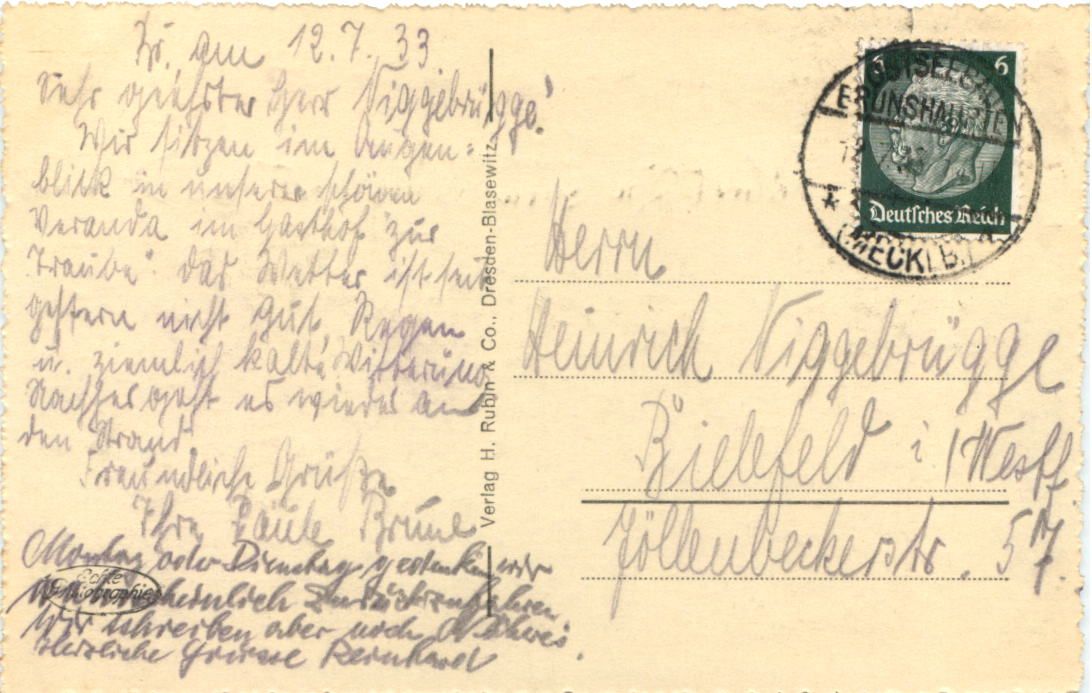 Br. am 12.7.33
Sehr geehrter Herr Niggebrügge!
Wir sitzen im Augen=
blick in unserer schönen
Veranda im Gasthof "zur
Traube" das Wetter ist seit
gestern nicht gut, Regen
u. ziemlich kalte Witterung
Nachher geht es wieder an
den Strand.
Freundliche Grüße
Ihre
Montag oder Dienstag gedenken wir
wahrscheinlich zurückzufahren
Wir schreiben aber noch
Herzliche Grüsse Reinhard
Echte Photographie
Verlag H. Rubin & Co., Dresden-Blasewitz
6 6
Deutsches Reich
OSTSEEBAD
BRUNSHAUPTEN
(MECKLB.)
Herrn
Heinrich Niggebrügge
Bielefeld i/Westf
Jöllenbeckerstr. 57.